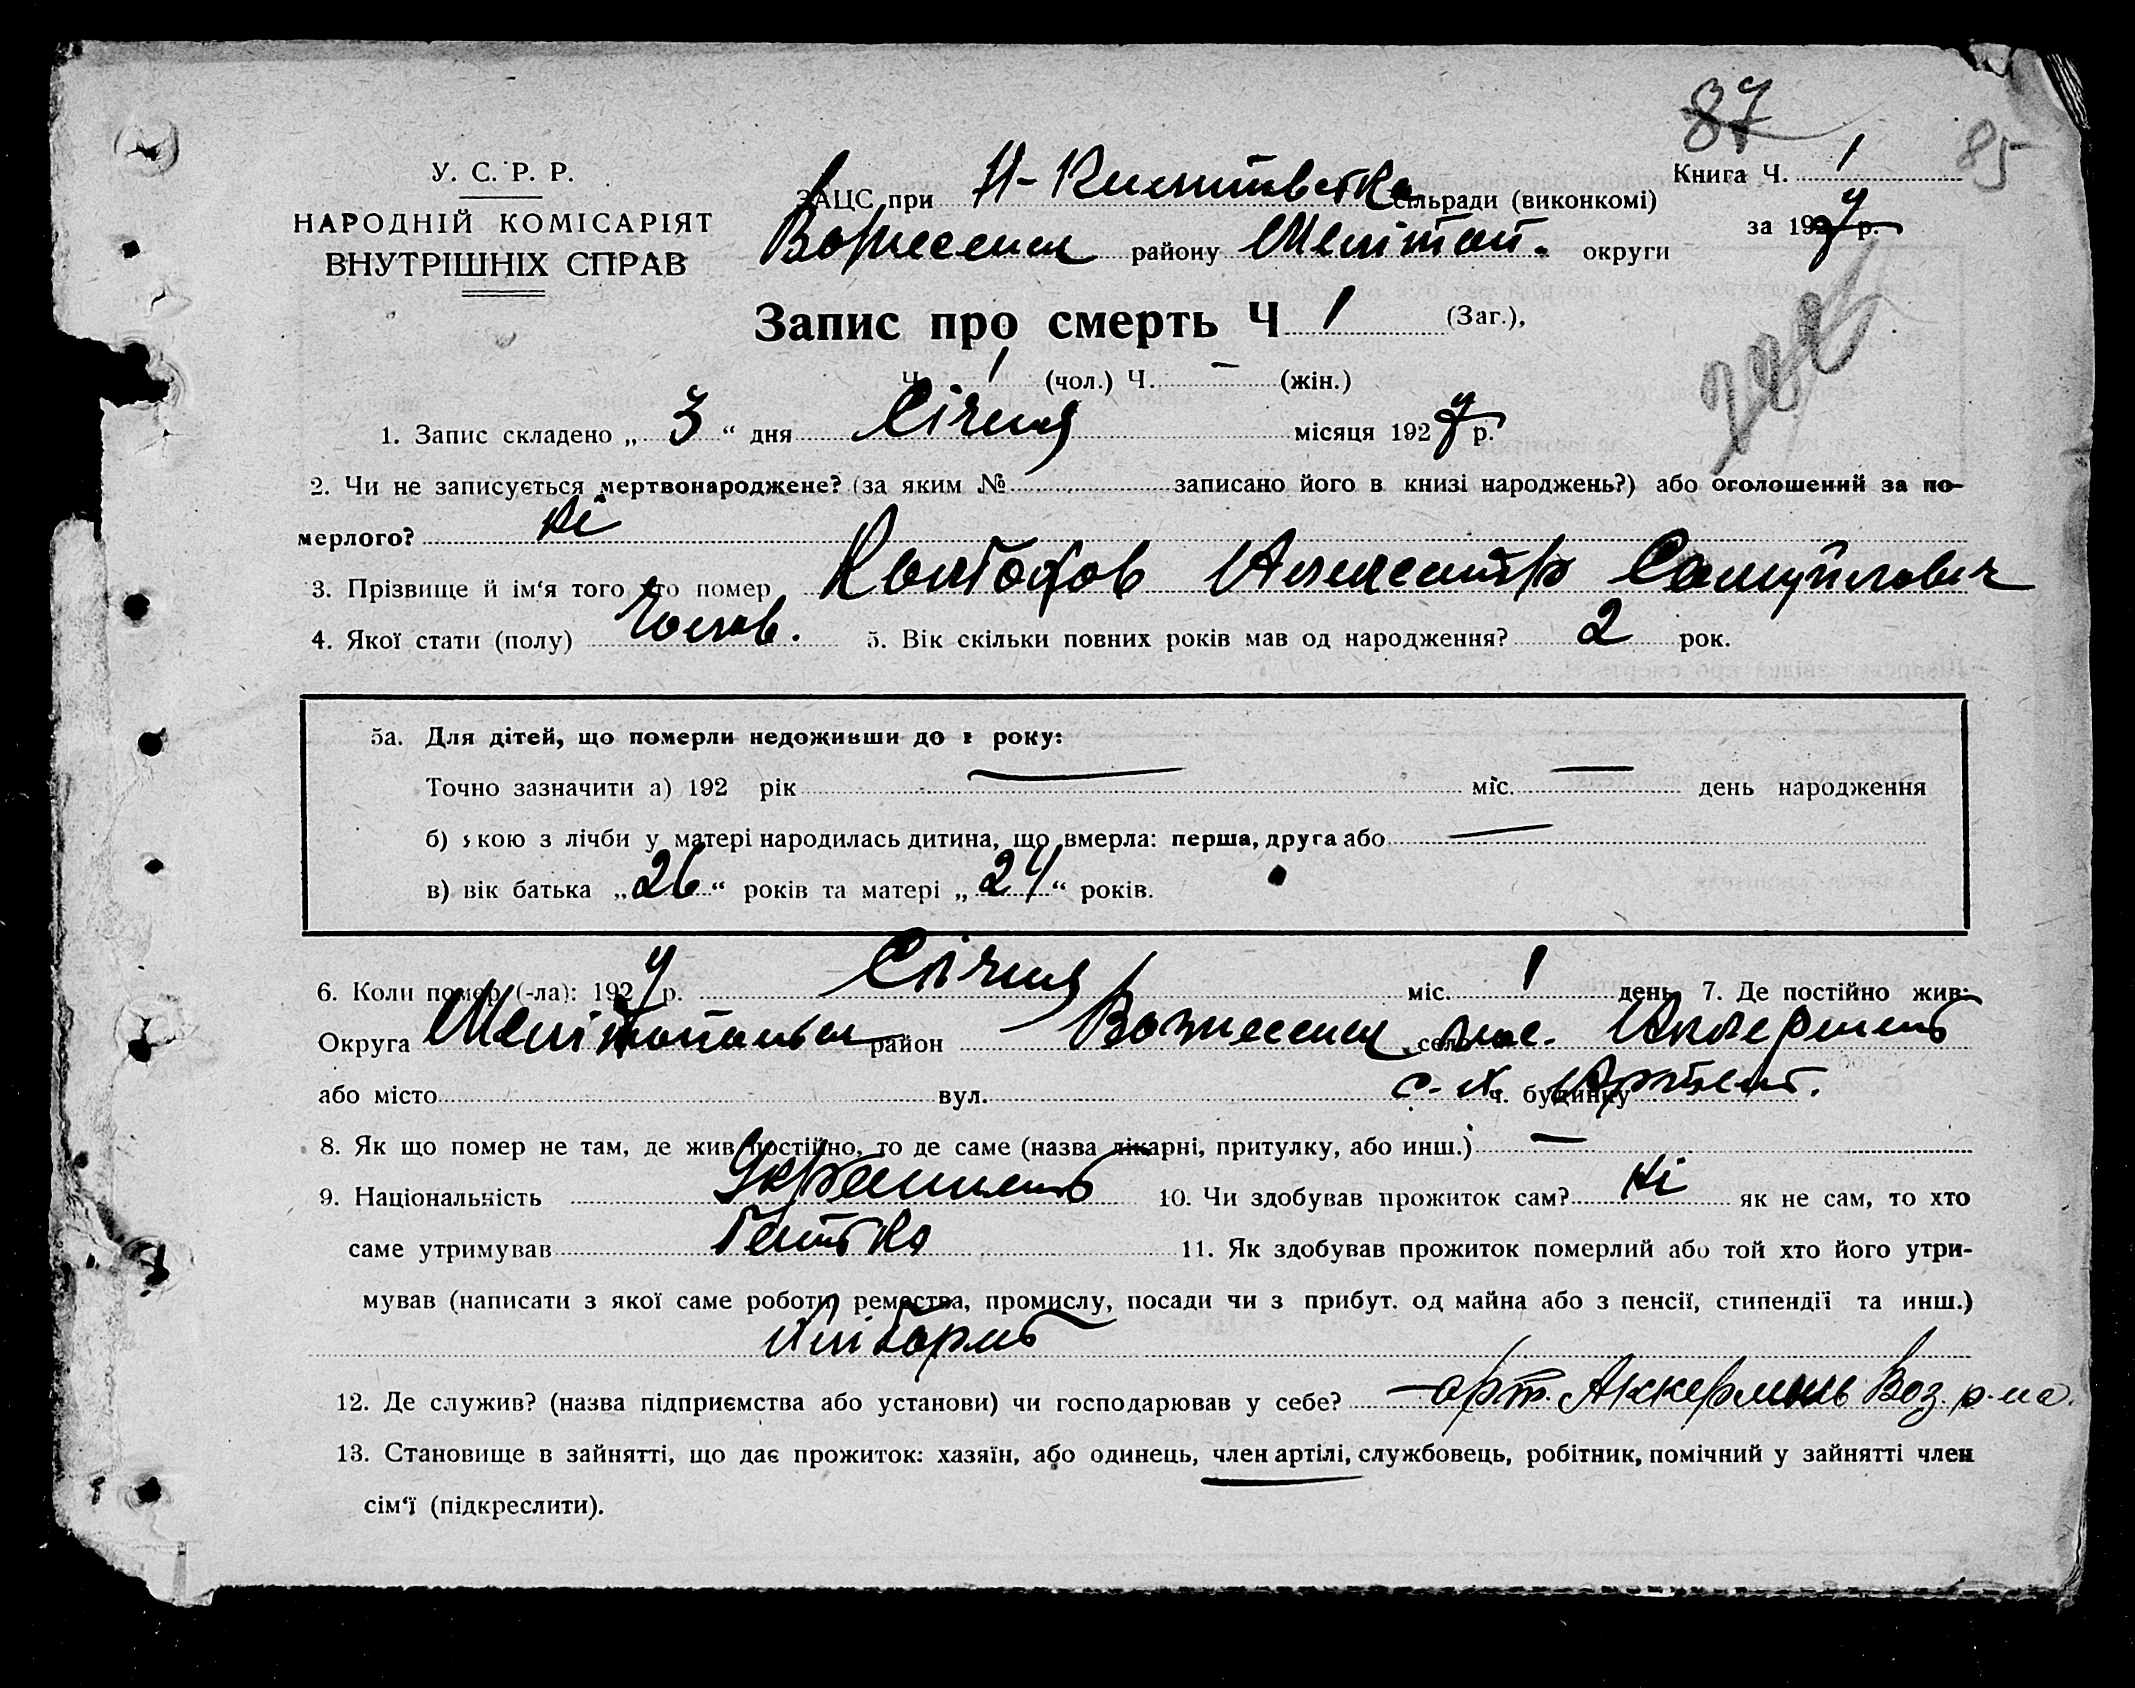 87
85
У. С. Р. Р.
НАРОДНІЙ КОМІСАРІЯТ
ВНУТРІШНІХ СПРАВ
ЗАЦС при сільради (виконкомі)
Вознесенск району Меліто­п. округи
Книга Ч. 1
за 1927 р.
Запис про смерть Ч 1 (Заг.),
Ч 1 (чол.) Ч. — (жін.)
1. Запис складено „ 3 “ дня Січня місяця 1927 р.
2. Чи не записується мертвонароджене? (за яким № записано його в книзі народжень?) або оголошений за по-
мерлого? Ні
3. Прізвище й ім‘я того хто помер Самуйлович
4. Якої стати (полу) Чолов. 5. Вік скільки повних років мав од народження? 2 рок.
5а. Для дітей, що померли недоживши до 1 року:
Точно зазначити а) 192 рік — міс. — день народження
б) якою з лічби у матері народилась дитина, що вмерла: перша, друга або —
в) вік батька „ 26 “ років та матері „ 24 “ років.
6. Коли помер (-ла): 1927 р. Січня міс. 1 день 7. Де постійно жив:
Округа район село
або місто вул. ч. будинку
с.-х. Артель.
8. Як що помер не там, де жив постійно, то де саме (назва лікарні, притулку, або инш.) —
9. Національність 10. Чи здобував прожиток сам? Ні як не сам, то хто
саме утримував Батько 11. Як здобував прожиток померлий або той хто його утри-
мував (написати з якої саме роботи, ремества, промислу, посади чи з прибут. од майна або з пенсії, стипендії та инш.)
Хлібороб
12. Де служив? (назва підприємства або установи) чи господарював у себе? — арт. Аккермень Воз. р-на.
13. Становище в зайнятті, що дає прожиток: хазяїн, або одинець, член артілі, службовець, робітник, помічний у зайнятті член
сім‘ї (підкреслити).